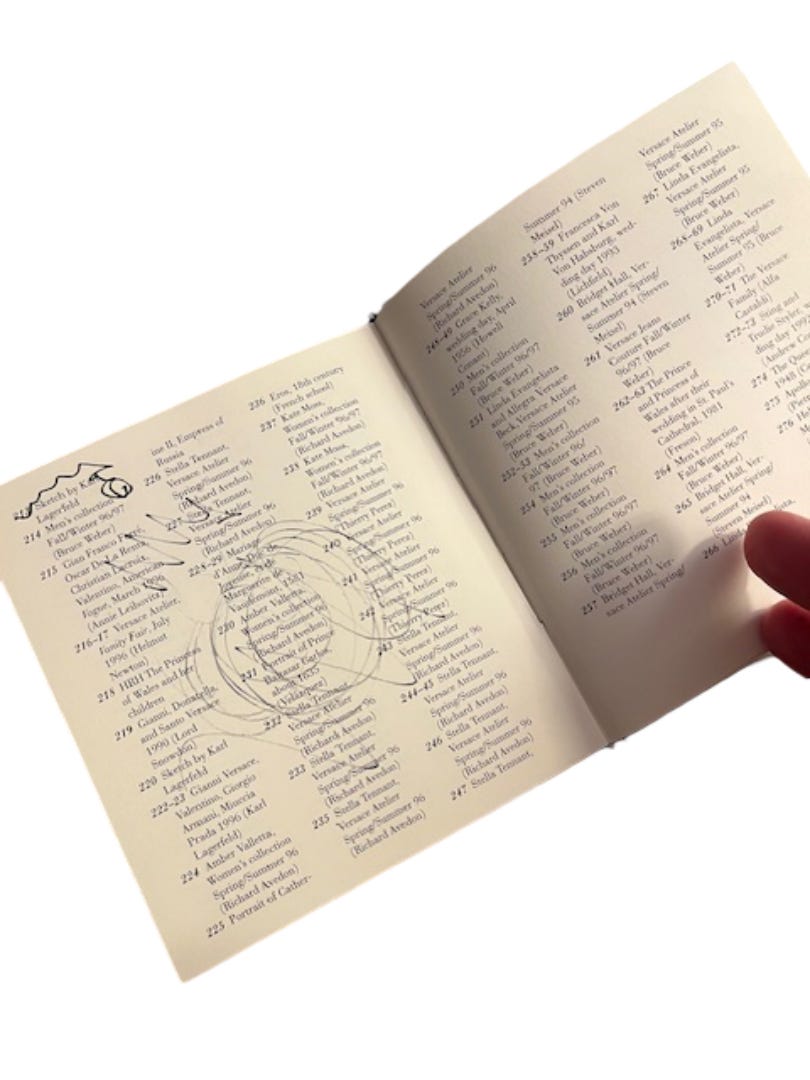 Sketch by Karl
Lagerfeld
214 Men's collection
Fall/Winter 96/97
(Bruce Weber)
215 Gian Franco Ferré,
Oscar De La Renta,
Christian Lacroix,
Valentino, American
Vogue, March 1996
(Annie Leibovitz)
216–17 Versace Atelier,
Vanity Fair, July
1996 (Helmut
Newton)
218 HRH The Princess
of Wales and her
children
219 Gianni, Donatella,
and Santo Versace
1990 (Lord
Snowdon)
220 Sketch by Karl
Lagerfeld
222–23 Gianni Versace,
Valentino, Giorgio
Armani, Miuccia
Prada 1996 (Karl
Lagerfeld)
224 Amber Valletta,
Women's collection
Spring/Summer 96
(Richard Avedon)
225 Portrait of Cather-
ine II, Empress of
Russia
226 Stella Tennant,
Versace Atelier
Spring/Summer 96
(Richard Avedon)
227 Stella Tennant,
Versace Atelier
Spring/Summer 96
(Richard Avedon)
228–29 Mariage
d'Anne, Duc de
Joyeuse, et de
Marguerite de
Vaudemont, 1581
230 Amber Valletta,
Women's collection
Spring/Summer 96
(Richard Avedon)
231 Portrait of Prince
Baltasar Carlos,
about 1635
(Velázquez)
232 Stella Tennant,
Versace Atelier
Spring/Summer 96
(Richard Avedon)
233 Stella Tennant,
Versace Atelier
Spring/Summer 96
(Richard Avedon)
235 Stella Tennant,
Versace Atelier
Spring/Summer 96
(Richard Avedon)
236 Eros, 18th century
(French school)
237 Kate Moss,
Women's collection
Fall/Winter 96/97
(Richard Avedon)
238 Kate Moss,
Women's collection
Fall/Winter 96/97
(Richard Avedon)
239 Versace Atelier
Spring/Summer 96
(Thierry Perez)
240 Versace Atelier
Spring/Summer 96
(Thierry Perez)
241 Versace Atelier
Spring/Summer 96
(Thierry Perez)
242 Versace Atelier
Spring/Summer 96
(Thierry Perez)
243 Stella Tennant,
Versace Atelier
Spring/Summer 96
(Richard Avedon)
244–45 Stella Tennant,
Versace Atelier
Spring/Summer 96
(Richard Avedon)
246 Stella Tennant,
Versace Atelier
Spring/Summer 96
(Richard Avedon)
247 Stella Tennant,
Versace Atelier
Spring/Summer 96
(Richard Avedon)
248–49 Grace Kelly,
wedding day, April
1956 (Howell
Conant)
250 Men's collection
Fall/Winter 96/97
(Bruce Weber)
251 Linda Evangelista
and Allegra Versace
Beck, Versace Atelier
Spring/Summer 95
(Bruce Weber)
252–53 Men's collection
Fall/Winter 96/
97 (Bruce Weber)
254 Men's collection
Fall/Winter 96/97
(Bruce Weber)
255 Men's collection
Fall/Winter 96/97
(Bruce Weber)
256 Men's collection
Fall/Winter 96/97
(Bruce Weber)
257 Bridget Hall, Ver-
sace Atelier Spring/
Summer 94 (Steven
Meisel)
258–59 Francesca Von
Thyssen and Karl
Von Habsburg, wed-
ding day 1993
(Lichfield)
260 Bridget Hall, Ver-
sace Atelier Spring/
Summer 94 (Steven
Meisel)
261 Versace Jeans
Couture Fall/Winter
96/97 (Bruce
Weber)
262–63 The Prince
and Princess of
Wales after their
wedding in St. Paul's
Cathedral, 1981
(Freson)
264 Men's collection
Fall/Winter 96/97
(Bruce Weber)
265 Bridget Hall, Ver-
sace Atelier Spring/
Summer 94
(Steven Meisel)
266
Versace Atelier
Spring/Summer 95
(Bruce Weber)
267 Linda Evangelista,
Versace Atelier
Spring/Summer 95
(Bruce Weber)
268–69 Linda
Evangelista, Versace
Atelier Spring/
Summer 95 (Bruce
Weber)
270–71 The Versace
Family (Alfa
Castaldi)
272–73 Sting and
Trudie Styler,
ding day
(Andrew
274 The
1948
275
276